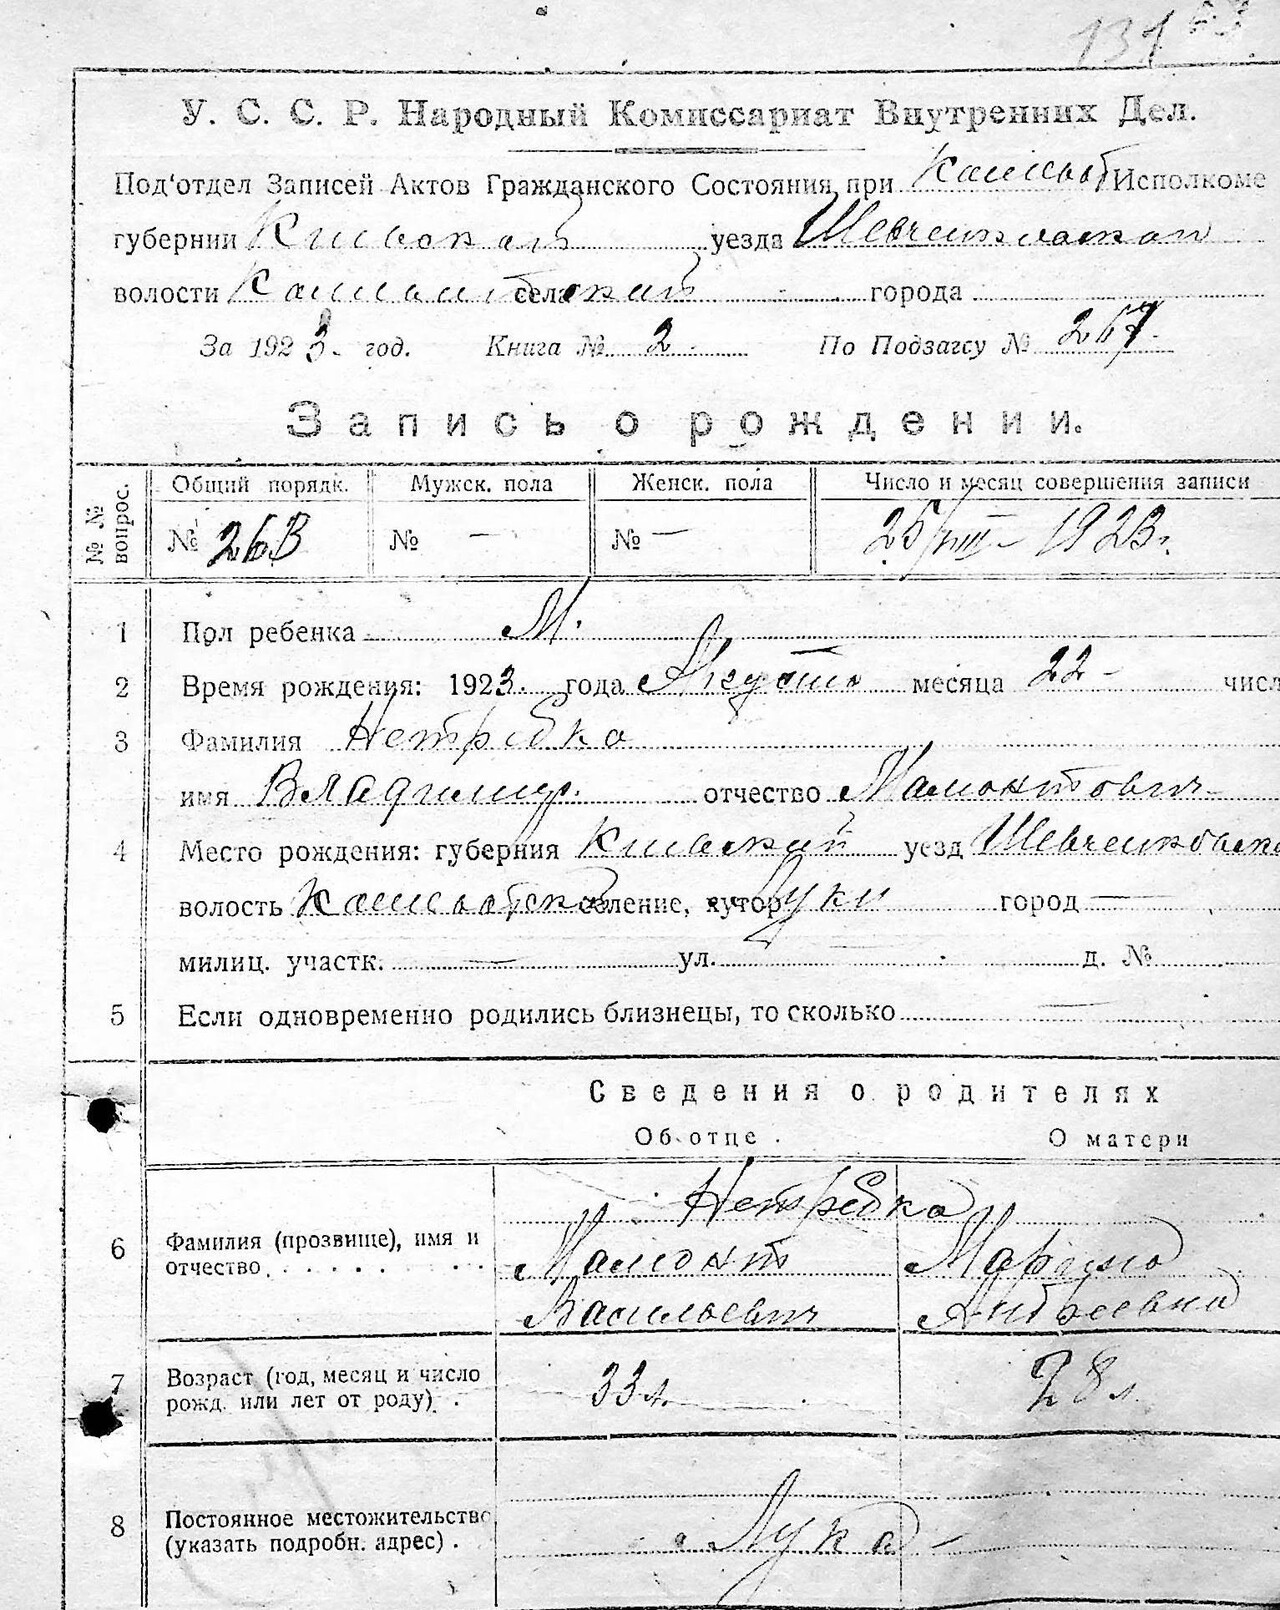 131
У. С. С. Р. Народный Комиссариат Внутренних Дел.
Под'отдел Записей Актов Гражданского Состояния при Исполкоме
губернии Киевской уезда Шевченковской
волости села города
За 1923 год. Книга № 2 По Подзагсу № 267
Запись о рождении.
№№ вопрос. Общий порядк. Мужск. пола Женск. пола Число и месяц совершения записи
№ 263 № — № — 25/VIII — 1923 г.
1 Пол ребенка М.
2 Время рождения: 1923 года Августа месяца 22 — числ
3 Фамилия Нетребка
имя Владимир. отчество Мамонтович
4 Место рождения: губерния Киевской уезд Шевченковско
волость селение, хутор Луки город —
милиц. участк. — ул. д. №
5 Если одновременно родились близнецы, то сколько —
Сведения о родителях
Об отце. О матери
Нетребка
6 Фамилия (прозвище), имя и Мамонт
отчество Васильевич Андреевна
7 Возраст (год, месяц и число 33 л. 28 л.
рожд. или лет от роду).
8 Постоянное местожительство
(указать подробн. адрес). с. Лука —